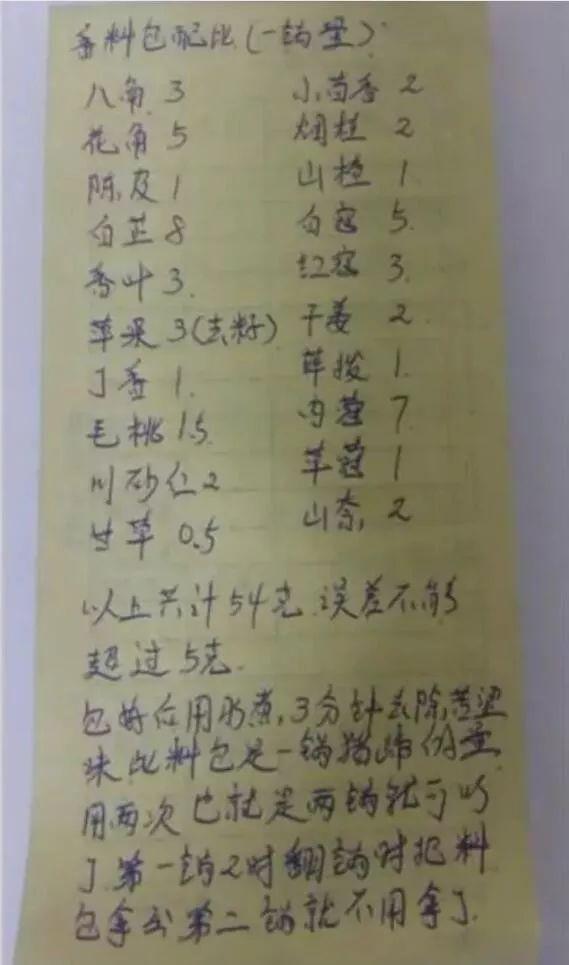 香料包配比(一锅量)
八角 3 小茴香 2
花角 5 烟桂 2
陈皮 1 山楂 1
白芷 8 白寇 5
香叶 3 红寇 3
草果 3(去籽) 干姜 2
丁香 1 荜拨 1
毛桃 1.5 肉蔻 7
川砂仁 2 草蔻 1
甘草 0.5 山奈 2
以上共计54克 误差不能
超过5克
包好后用水煮,3分钟去除苦涩
味 此料包是一锅猪蹄的量
用两次也就是两锅就可以
了 第一锅2时翻锅时把料
包拿出 第二锅就不用拿了